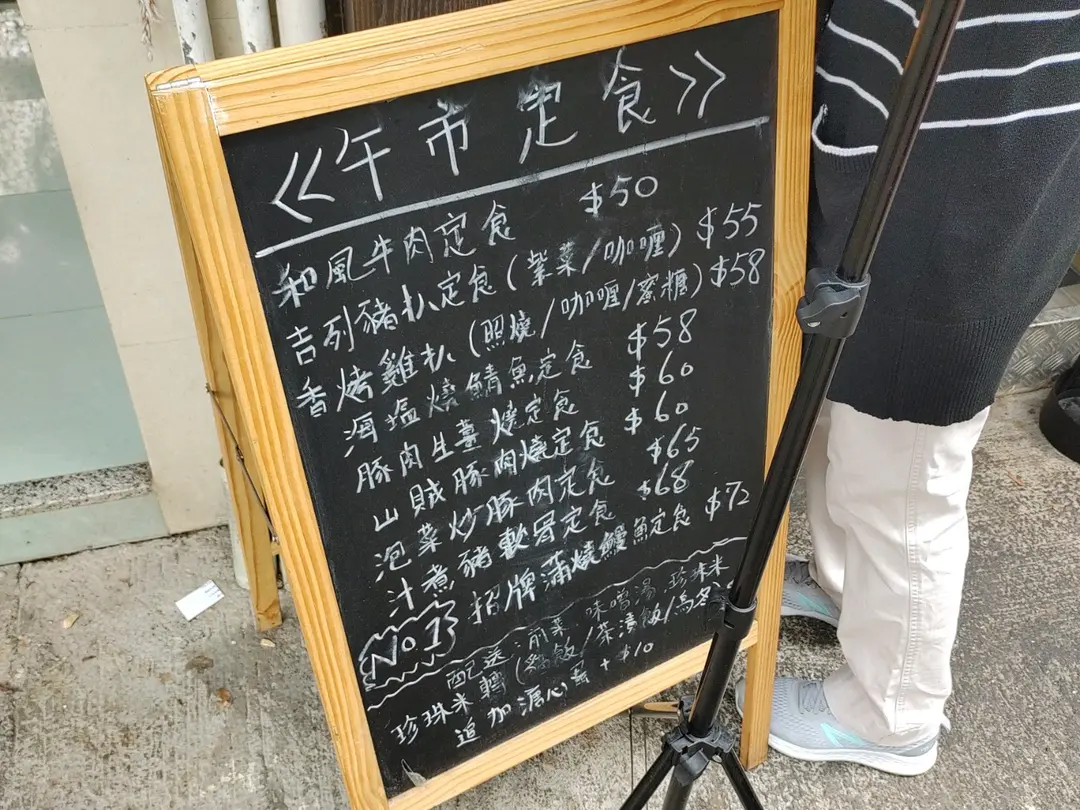 <<午市定食>>
和風牛肉定食 $50
吉列豬扒定食(紫菜/咖喱) $55
香烤雞扒(照燒/咖喱/蜜糖) $58
海塩燒鯖魚定食 $58
豚肉生薑燒定食 $60
山賊豚肉燒定食 $60
泡菜炒豚肉定食 $65
汁煮豬軟骨定食 $68
No.1 招牌蒲燒鰻魚定食 $72
配送:前菜 味噌湯 珍珠米
珍珠米轉(飯/茶漬飯/烏冬
追加溏心蛋 + $10